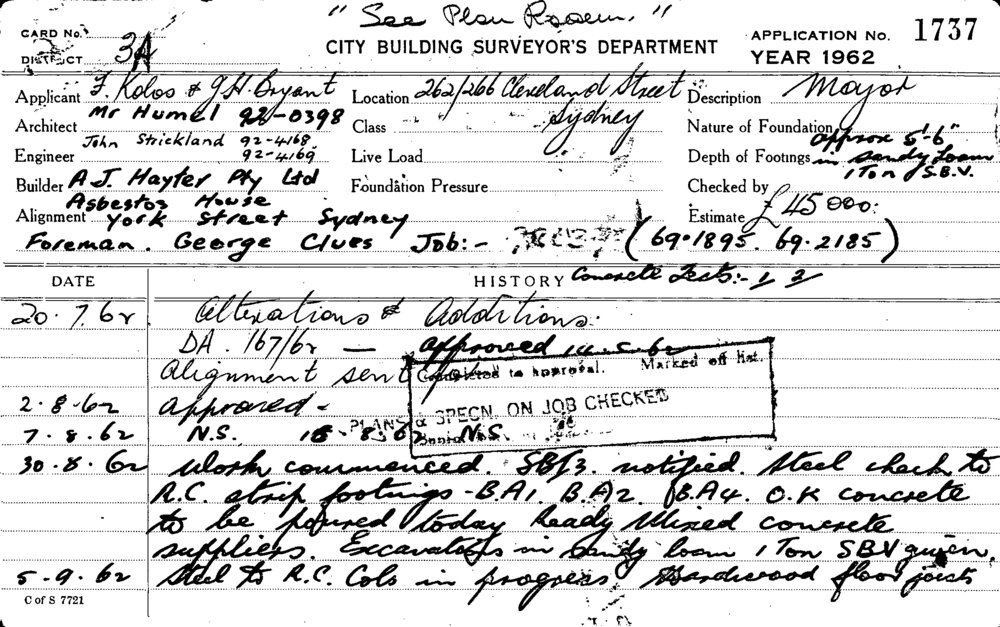 "See Plan Room."
CARD No.
DISTRICT 3A
CITY BUILDING SURVEYOR'S DEPARTMENT
APPLICATION No. 1737
YEAR 1962
Applicant F. Kolos & J.H. Bryant
Location 262/266 Cleveland Street
Sydney
Description Major
Architect Mr Humel 92-0398
Class
Nature of Foundation approx 5'-6"
Engineer John Strickland 92-4168
92-4169
Live Load
Depth of Footings in sandy loam
1 Ton S.B.V.
Builder A J. Hayter Pty Ltd
Foundation Pressure
Checked by
Asbestos House
Alignment York Street Sydney
Estimate £45000:
Foreman. George Clues Job:- (69.1895. 69.2185)
DATE
HISTORY Concrete Tests:- 1 2
20.7.62 Alterations & Additions.
DA. 167/62 — approved 14.5.62
Alignment sent for
Completed to approval. Marked off list.
PLANS & SPECN. ON JOB CHECKED
2.8.62 approved -
7.8.62 N.S. 16.8.62 N.S.
30.8.62 Work commenced. SB/3. notified. Steel check to
R.C. strip footings - B.A1. B.A2. B.A4. O.K concrete
to be poured today Ready Mixed concrete
suppliers. Excavations in sandy loam 1 Ton SBV given.
5.9.62 Steel to R.C. Cols in progress. Hardwood floor joists
C of S 7721